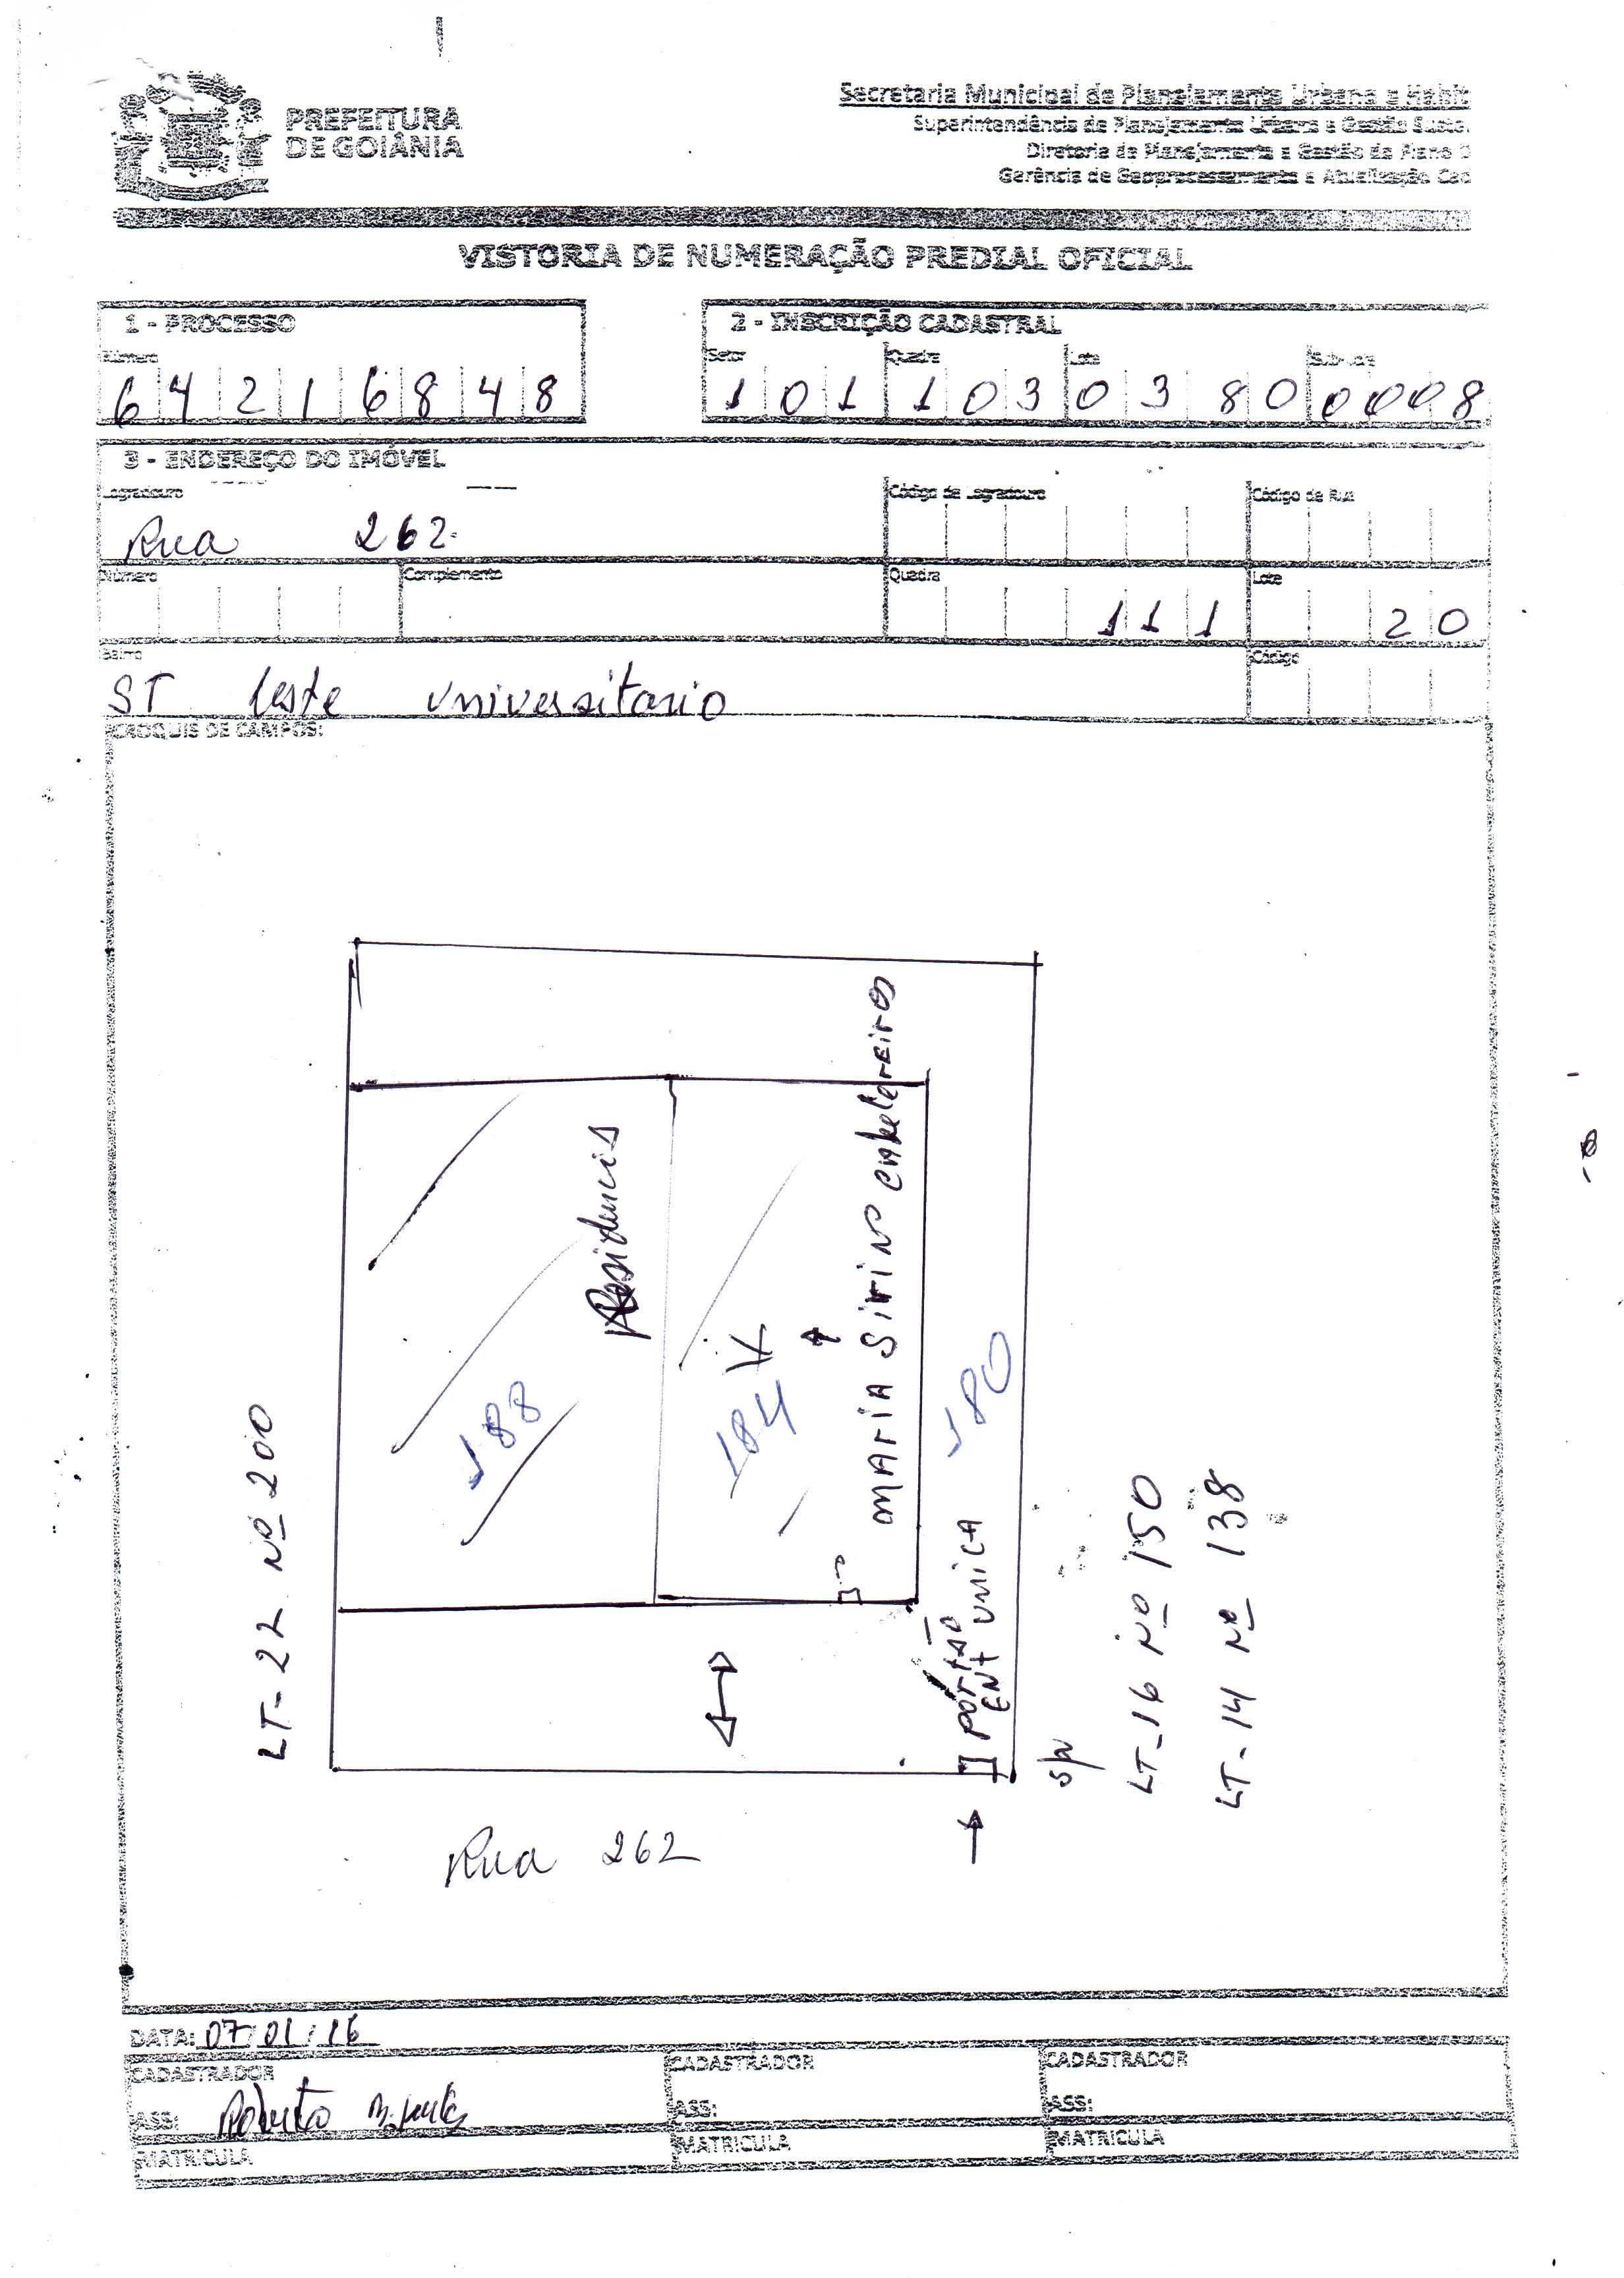 PREFEITURA
DE GOIÂNIA
Secretaria Municipal de Planejamento Urbano e Habit
Superintendência de Planejamento Urbano e Gestão Suste.
Diretoria de Planejamento e Gestão do Plano D
Gerência de Geoprocessamento e Atualização Cad
VISTORIA DE NUMERAÇÃO PREDIAL OFICIAL
1 - PROCESSO
Número
6 4 2 1 6 8 4 8
2 - INSCRIÇÃO CADASTRAL
Setor Quadra Lote Sub-Lote
1 0 1 1 0 3 0 3 8 0 0 0 0 8
3 - ENDEREÇO DO IMÓVEL
Logradouro Código de Logradouro Código de Rua
Rua 262
Número Complemento Quadra Lote
1 1 1 2 0
Bairro Código
ST Leste Universitario
CROQUIS DE CAMPOS:
LT-22 Nº 200
188
Residencis
184
MARIA SIVINO CABELEREIROS
180
PORTÃO
ENT UNICA
S/N
LT-16 Nº 150
LT-14 Nº 138
Rua 262
DATA: 07/01/16
CADASTRADOR CADASTRADOR CADASTRADOR
ASS: Roberto ASS: ASS:
MATRICULA MATRICULA MATRICULA